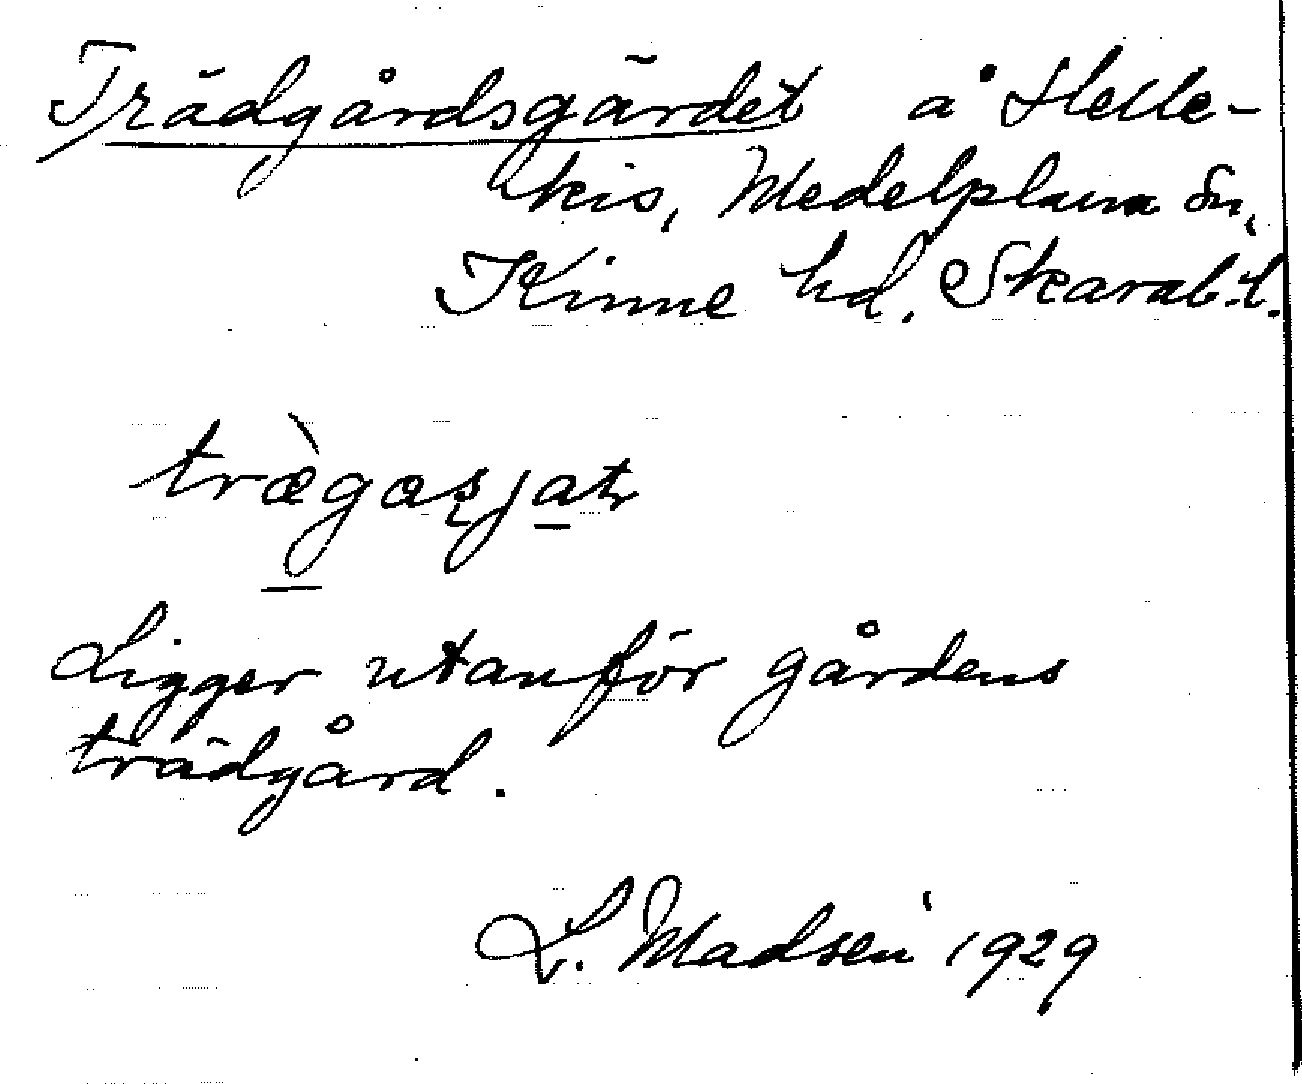 Trädgårdsgärdet å Helle-
kis, Medelplana sn,
Kinne hd. Skarab. l.
træ̀gaʂjat
Ligger utanför gårdens
trädgård.
L. Madsén 1929